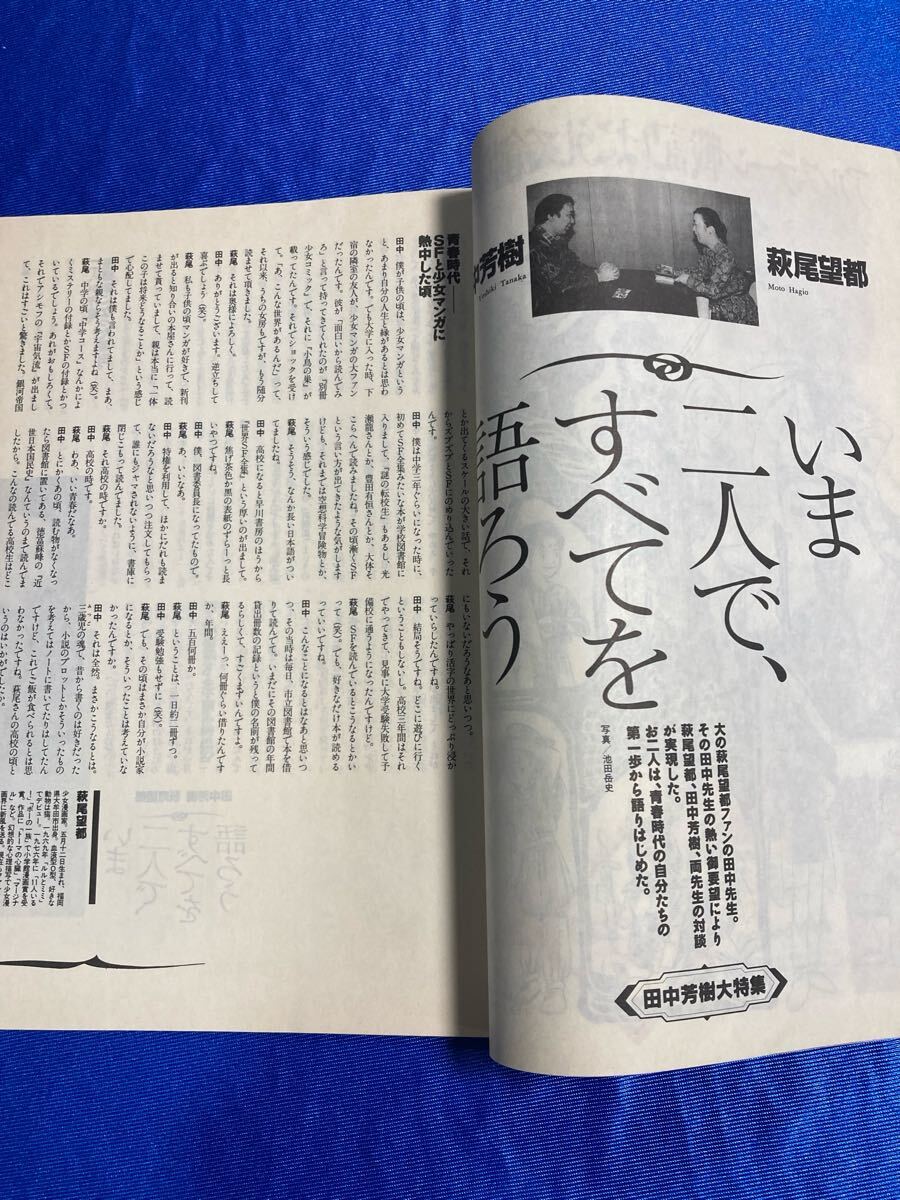 萩尾望都
Moto Hagio
芳樹
Tanaka
いま
二人で、
すべてを
語ろう
大の萩尾望都ファンの田中先生。
その田中先生の熱い御要望により
萩尾望都、田中芳樹、両先生の対談
が実現した。
お二人は、青春時代の自分たちの
第一歩から語りはじめた。
写真/池田岳史
田中芳樹大特集
青春時代――
SFと少女マンガに
熱中した頃
田中 僕が子供の頃は、少女マンガという
と、あまり自分の人生と縁があるとは思わ
なかったんです。でも大学に入った時、下
宿の隣室の友人が、少女マンガの大ファン
だったんです。彼が「面白いから読んでみ
ろ」と言って持ってきてくれたのが『別冊
少女コミック』で、それに『小鳥の巣』が
載ってたんです。それでショックを受け
て、「あ、こんな世界があるんだ」って、
それ以来、うちの女房もですが、もう随分
読ませて頂きました。
萩尾 それは奥様によろしく。
田中 ありがとうございます。逆立ちして
喜ぶでしょう(笑)。
萩尾 私も子供の頃マンガが好きで、新刊
が出ると知り合いの本屋さんに行って、読
ませて貰っていまして、親は本当に「一体
この子は将来どうなることか」という感じ
で心配してました。
田中 それは僕も言われてまして、まあ、
まともな親ならそう考えますよね(笑)。
萩尾 中学の頃『中学コース』なんかによ
くミステリの付録とかSFの付録とかつ
いているでしょう。あれがおもしろくて。
それでアシモフの『宇宙気流』が出まし
て、これはすごいと驚きました。銀河帝国
とか出てくるスケールの大きい話で、それ
からズブズブとSFにのめり込んでいった
んです。
田中 僕は中学三年ぐらいになった時に、
初めてSF全集みたいな本が学校図書館に
入りまして、『謎の転校生』もあるし、光
瀬龍さんとか、豊田有恒さんとか、大体そ
こらへんで読みましたね。その頃漸くSF
という言い方が出てきたような気がします
けども、それまでは空想科学冒険物とか、
そういう感じでした。
萩尾 そうそう、なんか長い日本語がつい
てましたね。
田中 高校になると早川書房のほうから
『世界SF全集』という厚いのが出まして。
萩尾 焦げ茶色か黒の表紙のずらーっと長
いやつですね。
田中 僕、図書委員長になってたもので。
萩尾 あ、いいなあ。
田中 特権を利用して、ほかにだれも読ま
ないだろうなと思いつつ注文してもらっ
て、誰にもジャマされないように、書庫に
閉じこもって読んでました。
萩尾 それ高校の時ですか。
田中 高校の時です。
萩尾 わあ、いい青春だなあ。
田中 とにかくあの頃、読む物がなくなっ
たら図書館に置いてある、徳富蘇峰の『近
世日本国民史』なんていうのまで読んでま
したから。こんなの読んでる高校生はどこ
にもいないだろうなあと思いつつ。
萩尾 やっぱり活字の世界にどっぷり浸か
っていらしたんですね。
田中 結局そうですね。どこに遊びに行く
ということもしないし。高校三年間はそれ
でやってきて、見事に大学受験失敗して予
備校に通うようになったんですけど。
萩尾 SFを読んでいるとこうなるとかい
って(笑)。でも、好きなだけ本が読める
っていいですね。
田中 こんなことになるとはなあと思いつ
つ、その当時は毎日、市立図書館で本を借
りて読んでて、いまだにその図書館の年間
貸出冊数の記録というと僕の名前が残って
るらしくて、すごくまずいんですよ。
萩尾 ええーっ、何冊ぐらい借りたんです
か、年間。
田中 五百何冊か。
萩尾 ということは、一日約二冊ずつ。
田中 受験勉強もせずに(笑)。
萩尾 でも、その頃はまさか自分が小説家
になるとか、そういったことは考えていな
かったんですか。
田中 それは全然。まさかこうなるとは。
三歳児の魂で、昔から書くのは好きだった
から、小説のプロットとかそういったもの
を考えてはノートに書いてたりはしてたん
ですけど、これでご飯が食べられるとは思
わなかったですね。萩尾さんの高校の頃と
いうのはいかがでしたか。
萩尾望都
少女漫画家。五月十二日生まれ、福岡
県大牟田市出身。血液型O型、好きな
動物は猫。一九六九年「ルルとミミ」
でデビュー。一九七六年に「11人いる
!」「ポーの一族」で小学館漫画賞を受
賞。作品に「トーマの心臓」「マージナ
ル」など。幻想的な心理描写で少女漫
画界に新風を送る。